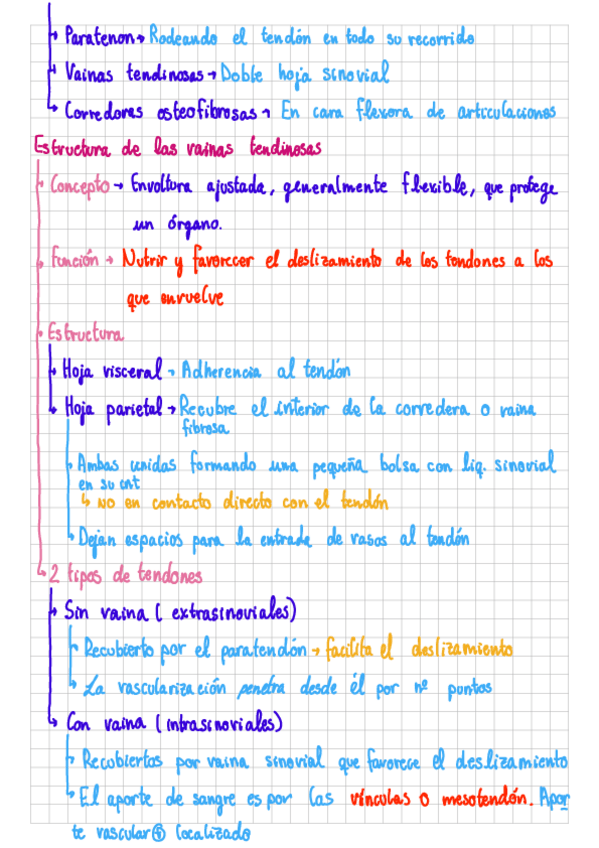 Paratenon → Rodeando el tendón en todo su recorrido
Vainas tendinosas → Doble hoja sinovial
Correderas osteofibrosas → En cara flexora de articulaciones
Estructura de las vainas tendinosas
Concepto → Envoltura ajustada, generalmente flexible, que protege
un órgano.
Función → Nutrir y favorecer el deslizamiento de los tendones a los
que envuelve
Estructura
Hoja visceral → Adherencia al tendón
Hoja parietal → Recubre el interior de la corredera o vaina
fibrosa
Ambas unidas formando una pequeña bolsa con liq. sinovial
en su int
↳ NO en contacto directo con el tendón
Dejan espacios para la entrada de vasos al tendón
2 tipos de tendones
Sin vaina (extrasinoviales)
Recubierto por el paratendón → facilita el deslizamiento
La vascularización penetra desde él por nº puntos
Con vaina (intrasinoviales)
Recubiertos por vaina sinovial que favorece el deslizamiento
El aporte de sangre es por las vínculas o mesotendón. Apor
te vascular ⊕ localizado